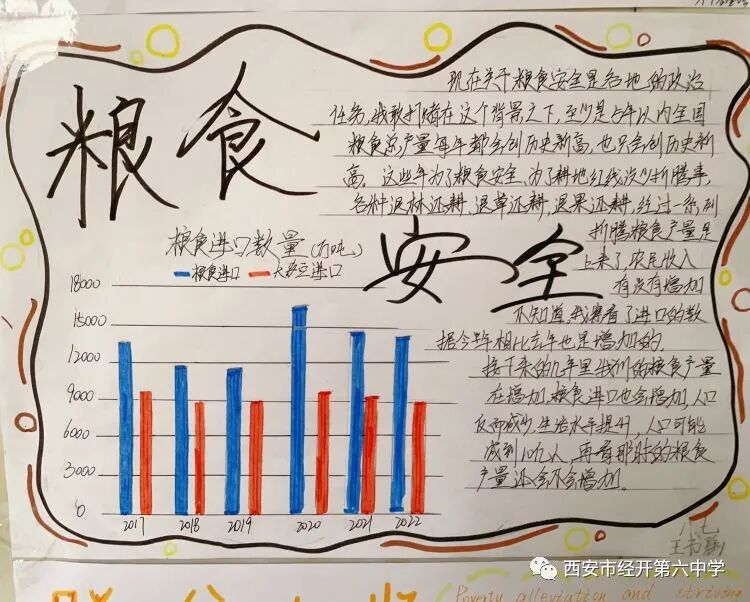 粮食
安全
现在关于粮食安全是各地的政治
任务,我敢打赌在这个背景之下,至少是5年以内全国
粮食总产量每年都会创历史新高,也只会创历史新
高。这些年为了粮食安全、为了耕地红线没少折腾事,
各种退林还耕、退草还耕、退果还耕,经过一系列
折腾粮食产量是
上来了,农民收入
有点有增加
不知道,我察看了进口的数
据今年相比去年也是增加的。
接下来的几年里我们的粮食产量
在增加,粮食进口也会增加,人口
反而减少,生活水平提升,人口可能
减到10亿人,再看那时的粮食
产量还会不会增加。
粮食进口数量(万吨)
粮食进口 大豆进口
18000
15000
12000
9000
6000
3000
0
2017 2018 2019 2020 2021 2022
八七
王书
西安市经开第六中学
Poverty alleviation and striving